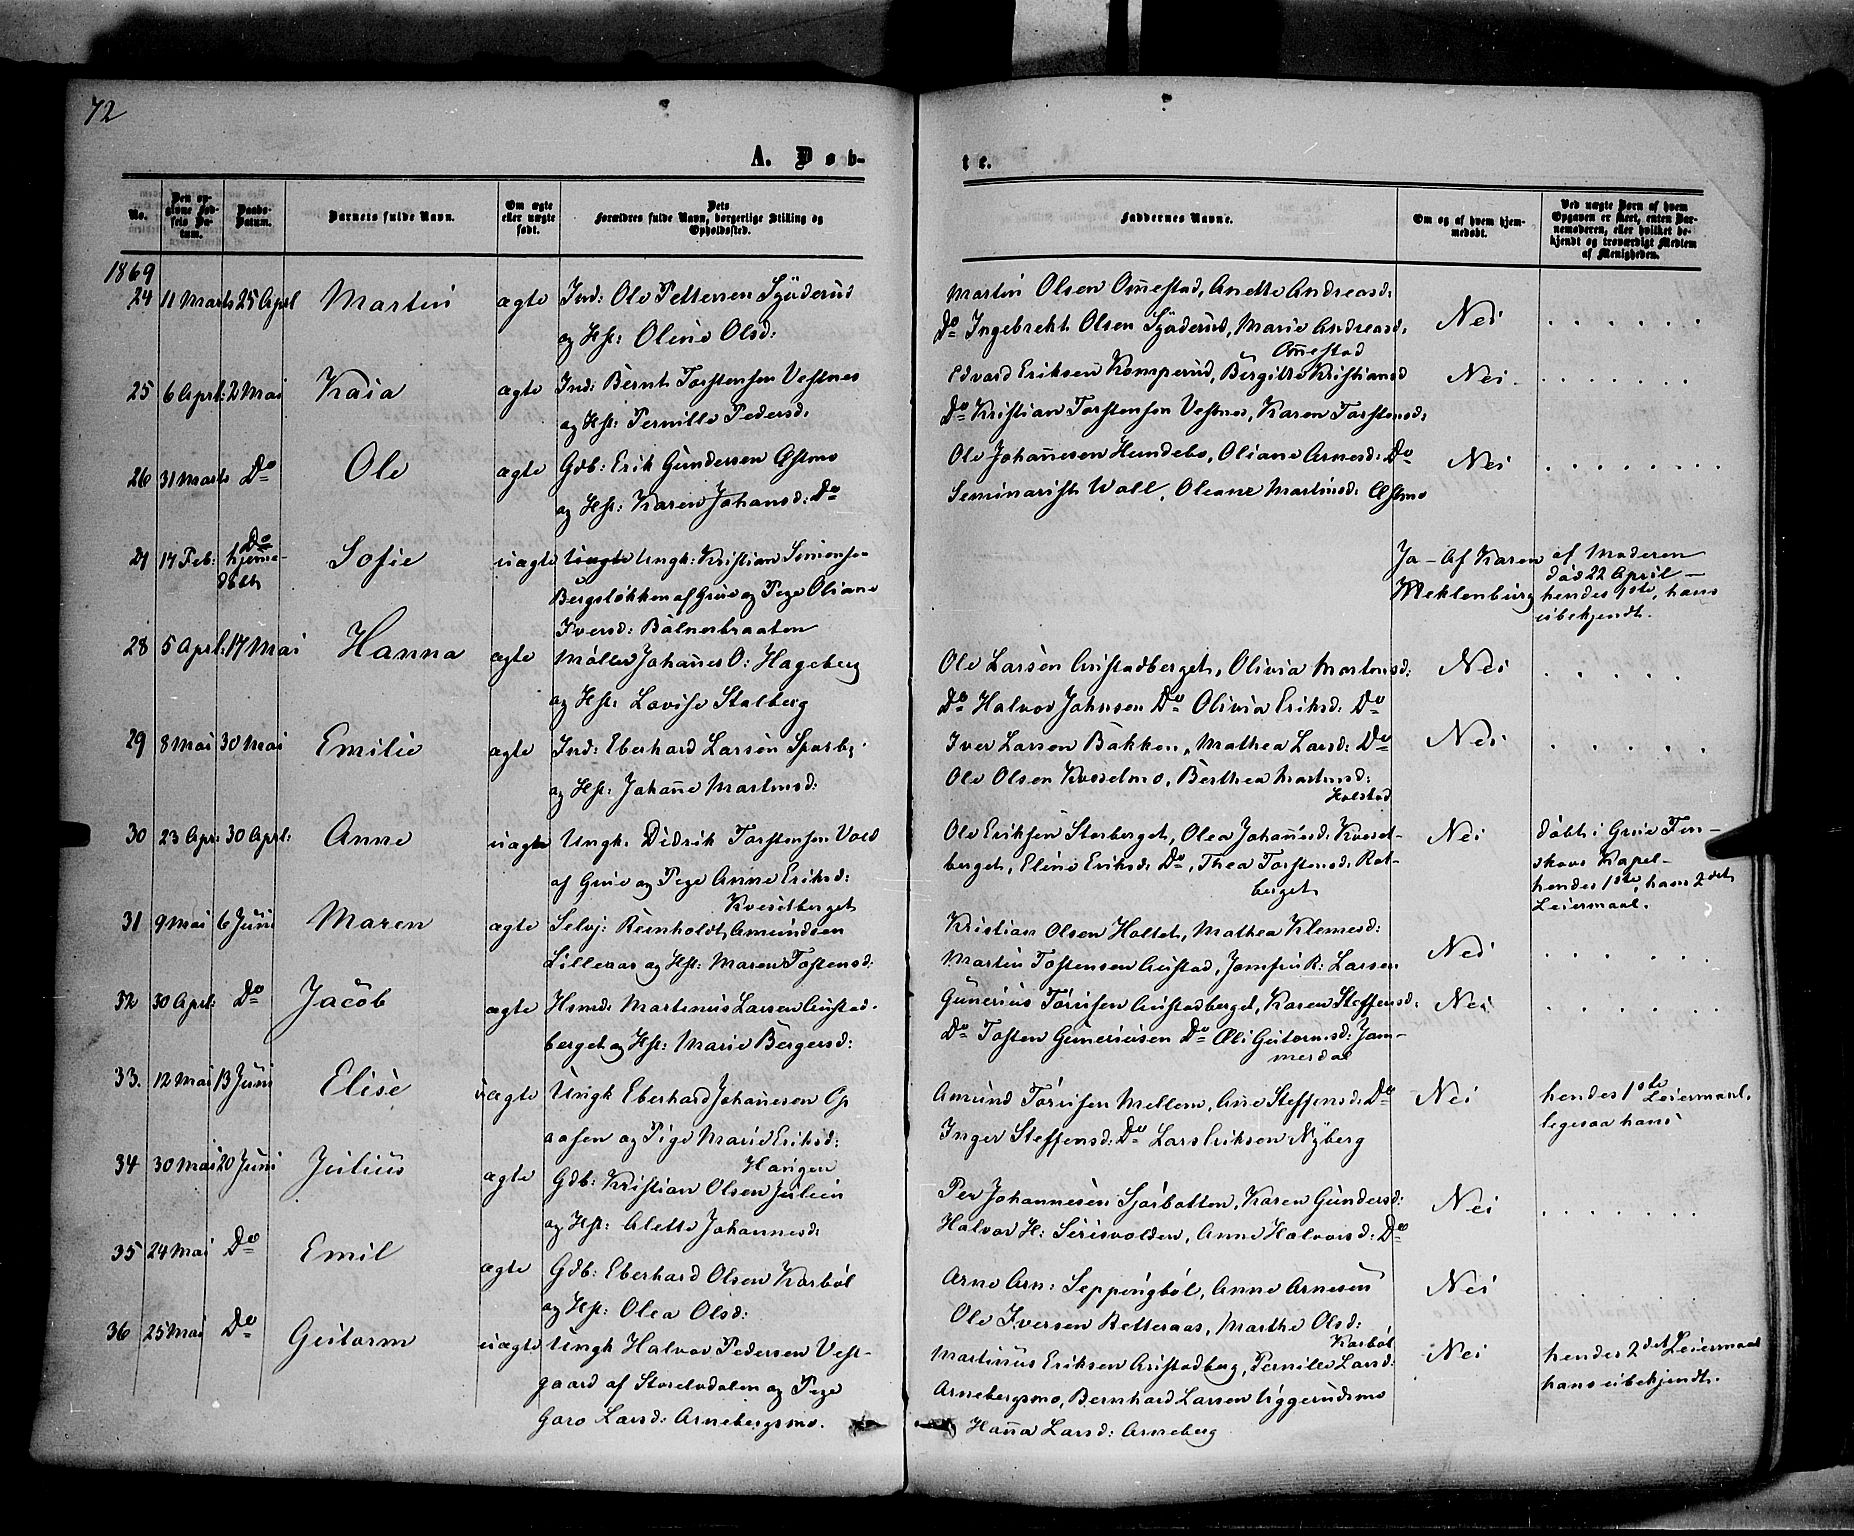 72
A. Døb-
te.
No.
Den opgivne Fødsels Datum.
Daabs-Datum.
Barnets fulde Navn.
Om ægte eller uægte født.
Dets Forældres fulde Navn, borgerlige Stilling og Opholdssted.
Faddernes Navne.
Om og af hvem hjemmedøbt.
Ved uægte Børn af hvem Opgaven er skeet, enten Barnemoderen, eller hvilket bekjendt og troværdigt Medlem af Menigheden.
1869
24 11 Marts 25 Aprl Martin ægte Ind: Ole Pettersen Sjøderud
og Hst: Oline Olsd:
Martin Olsen Omestad, Anette Andreasd:
Do Ingebrekt Olsen Sjøderud, Marie Andreasd:
Omestad
Nei . . . . . .
25 6 Aprl: 2 Mai Kaia ægte Ind: Bernt Torstensen Vestnes
og Hst: Pernille Pedersd:
Edvard Eriksen Kamperud, Bergitte Kristiansd
Do Kristian Torstensen Vestnes, Karen Torstensd:
Nei . . . . . . .
26 31 Marts Do Ole ægte Gdb: Erik Gundersen Østmo
og Hst: Karen Johansd: Do
Ole Johannesen Hundebo, Oliane Arnesd: Do
Seminarist Woll, Oleane Martinsd: Østmo
Nei . . . . . . . .
27 17 Feb: Do
hjemme-
døbt
Sofie uægte Uægte Ungk: Kristian Simensen
Bergsløkken af Grue og Pige Oliane
Iversd: Bålnesbraaten
Ja - Af Karen
Meklenburg
af Moderen
død 22 April -
hendes 1ste, hans
ubekjendt.
28 5 Aprl: 17 Mai Hanna ægte Møller Johannes O: Hageberg
og Hst: Lovise Stalberg
Ole Larsen Grustadberget, Olivia Martinsd:
Do Halvor Johnsen Do Olivia Eriksd: Do
Nei . . . . .
29 8 Mai 30 Mai Emilie ægte Ind: Eberhard Larsen Sparby
og Hst: Johanne Martinsd:
Iver Larsen Bakken, Mathea Larsd: Do
Ole Olsen Kvesetmo, Berthea Martinsd:
Holstad
Nei . . . . .
30 23 Apr: 30 Aprl: Anne uægte Ungk: Didrik Torstensen Vold
af Grue og Pige Anne Eriksd:
Kvesetberget
Ole Eriksen Storberget, Olea Johannesd: Kveset-
berget, Eline Eriksd: Do, Thea Torstensd: Rot-
berget
Nei
døbt i Grue Fin-
skovs Kapel-
hendes 1ste, hans 2det
Leiermaal.
31 9 Mai 6 Juni Maren ægte Selvj: Reinholdt Amundsen
Lilleaas og Hst: Maren Tostensd:
Kristian Olsen Holtet, Mathea Klemesd:
Martin Tostensen Grustad, Jomfru R: Larsen
Nei . . . . . .
32 30 Aprl: Do Jacob ægte Hsmd: Martinus Larsen Grustad-
berget og Hst: Marie Bergersd:
Gunerius Torusen Grustadberget, Karen Steffensd:
Do Tosten Guneriusen Do Oli Gutormsd: Jam-
merdal
Nei . . . . . .
33. 12 Mai 13 Juni Elise uægte Ungk Eberhard Johannesen Op
aasen og Pige Marie Eriksd:
Haugen
Amund Torusen Mellem, Ane Steffensd: Do
Inger Steffensd: Do Lars Eriksen Nyberg
Nei
hendes 1ste Leiermaal,
ligesaa hans
34 30 Mai 20 Juni Julius ægte Gdb: Kristian Olsen Julien
og Hst: Alette Johannesd:
Per Johannesen Sjøsbotten, Karen Gundersd:
Halvor H: Seiisvolden, Anne Halvorsd: Do
Nei . . . . . . .
35 24 Mai Do Emil ægte Gdb: Eberhard Olsen Karbøl
og Hst: Olea Olsd:
Arne Arn: Seppingbøl, Anne Arnesen
Ole Iversen Retteraas, Marthe Olsd:
Karbøl
Nei
36 25 Mai Do Gutorm uægte Ungk Halvor Pedersen Vest-
gaard af Storelvdalen og Pige
Goro Larsd: Arnebergsmo.
Martinus Eriksen Grustadberg, Pernille Larsd:
Arnebergsmo, Bernhard Larsen Uggerudsmo
Hanna Larsd: Arneberg
Nei
hendes 2det Leiermaal
hans ubekjendt.